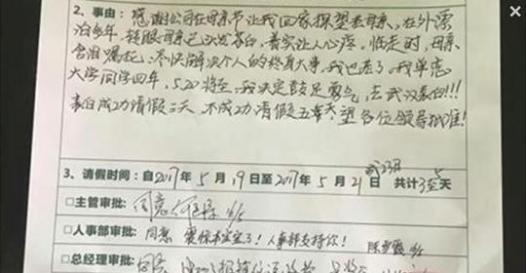 2、事由：感谢公司在母亲节让我回家探望老母亲，在外漂
泊多年，转眼母亲已头发苍白，着实让人心疼，临走时，母亲
含泪嘱托：尽快解决个人的终身大事，我也老了。我单恋
大学同学四年，5.20将至，我决定鼓足勇气，去武汉表白!!!
表白成功请假三天，不成功请假五天，望各位领导批准！
3、请假时间：自2017年5月19日至2017年5月21日 或23日 共计3至5天
□主管审批：同意
□人事部审批：同意 震惊本宝宝了！人事部支持你！
□总经理审批：同意